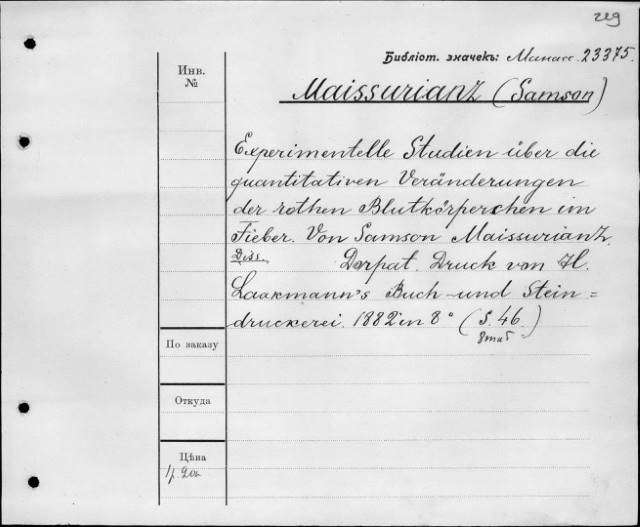 229
Библіот. значекъ: Манасс. 23375.
Инв.
№
Maissurianz (Samson)
Experimentelle Studien über die
quantitativen Veränderungen
der rothen Blutkörperchen im
Fieber. Von Samson Maissurianz.
Diss. Dorpat. Druck von H.
Laakmann's Buch- und Stein=
druckerei. 1882 in 8° (S. 46.)
8 таб
По заказу
Откуда
Цѣна
1 р. 20 к